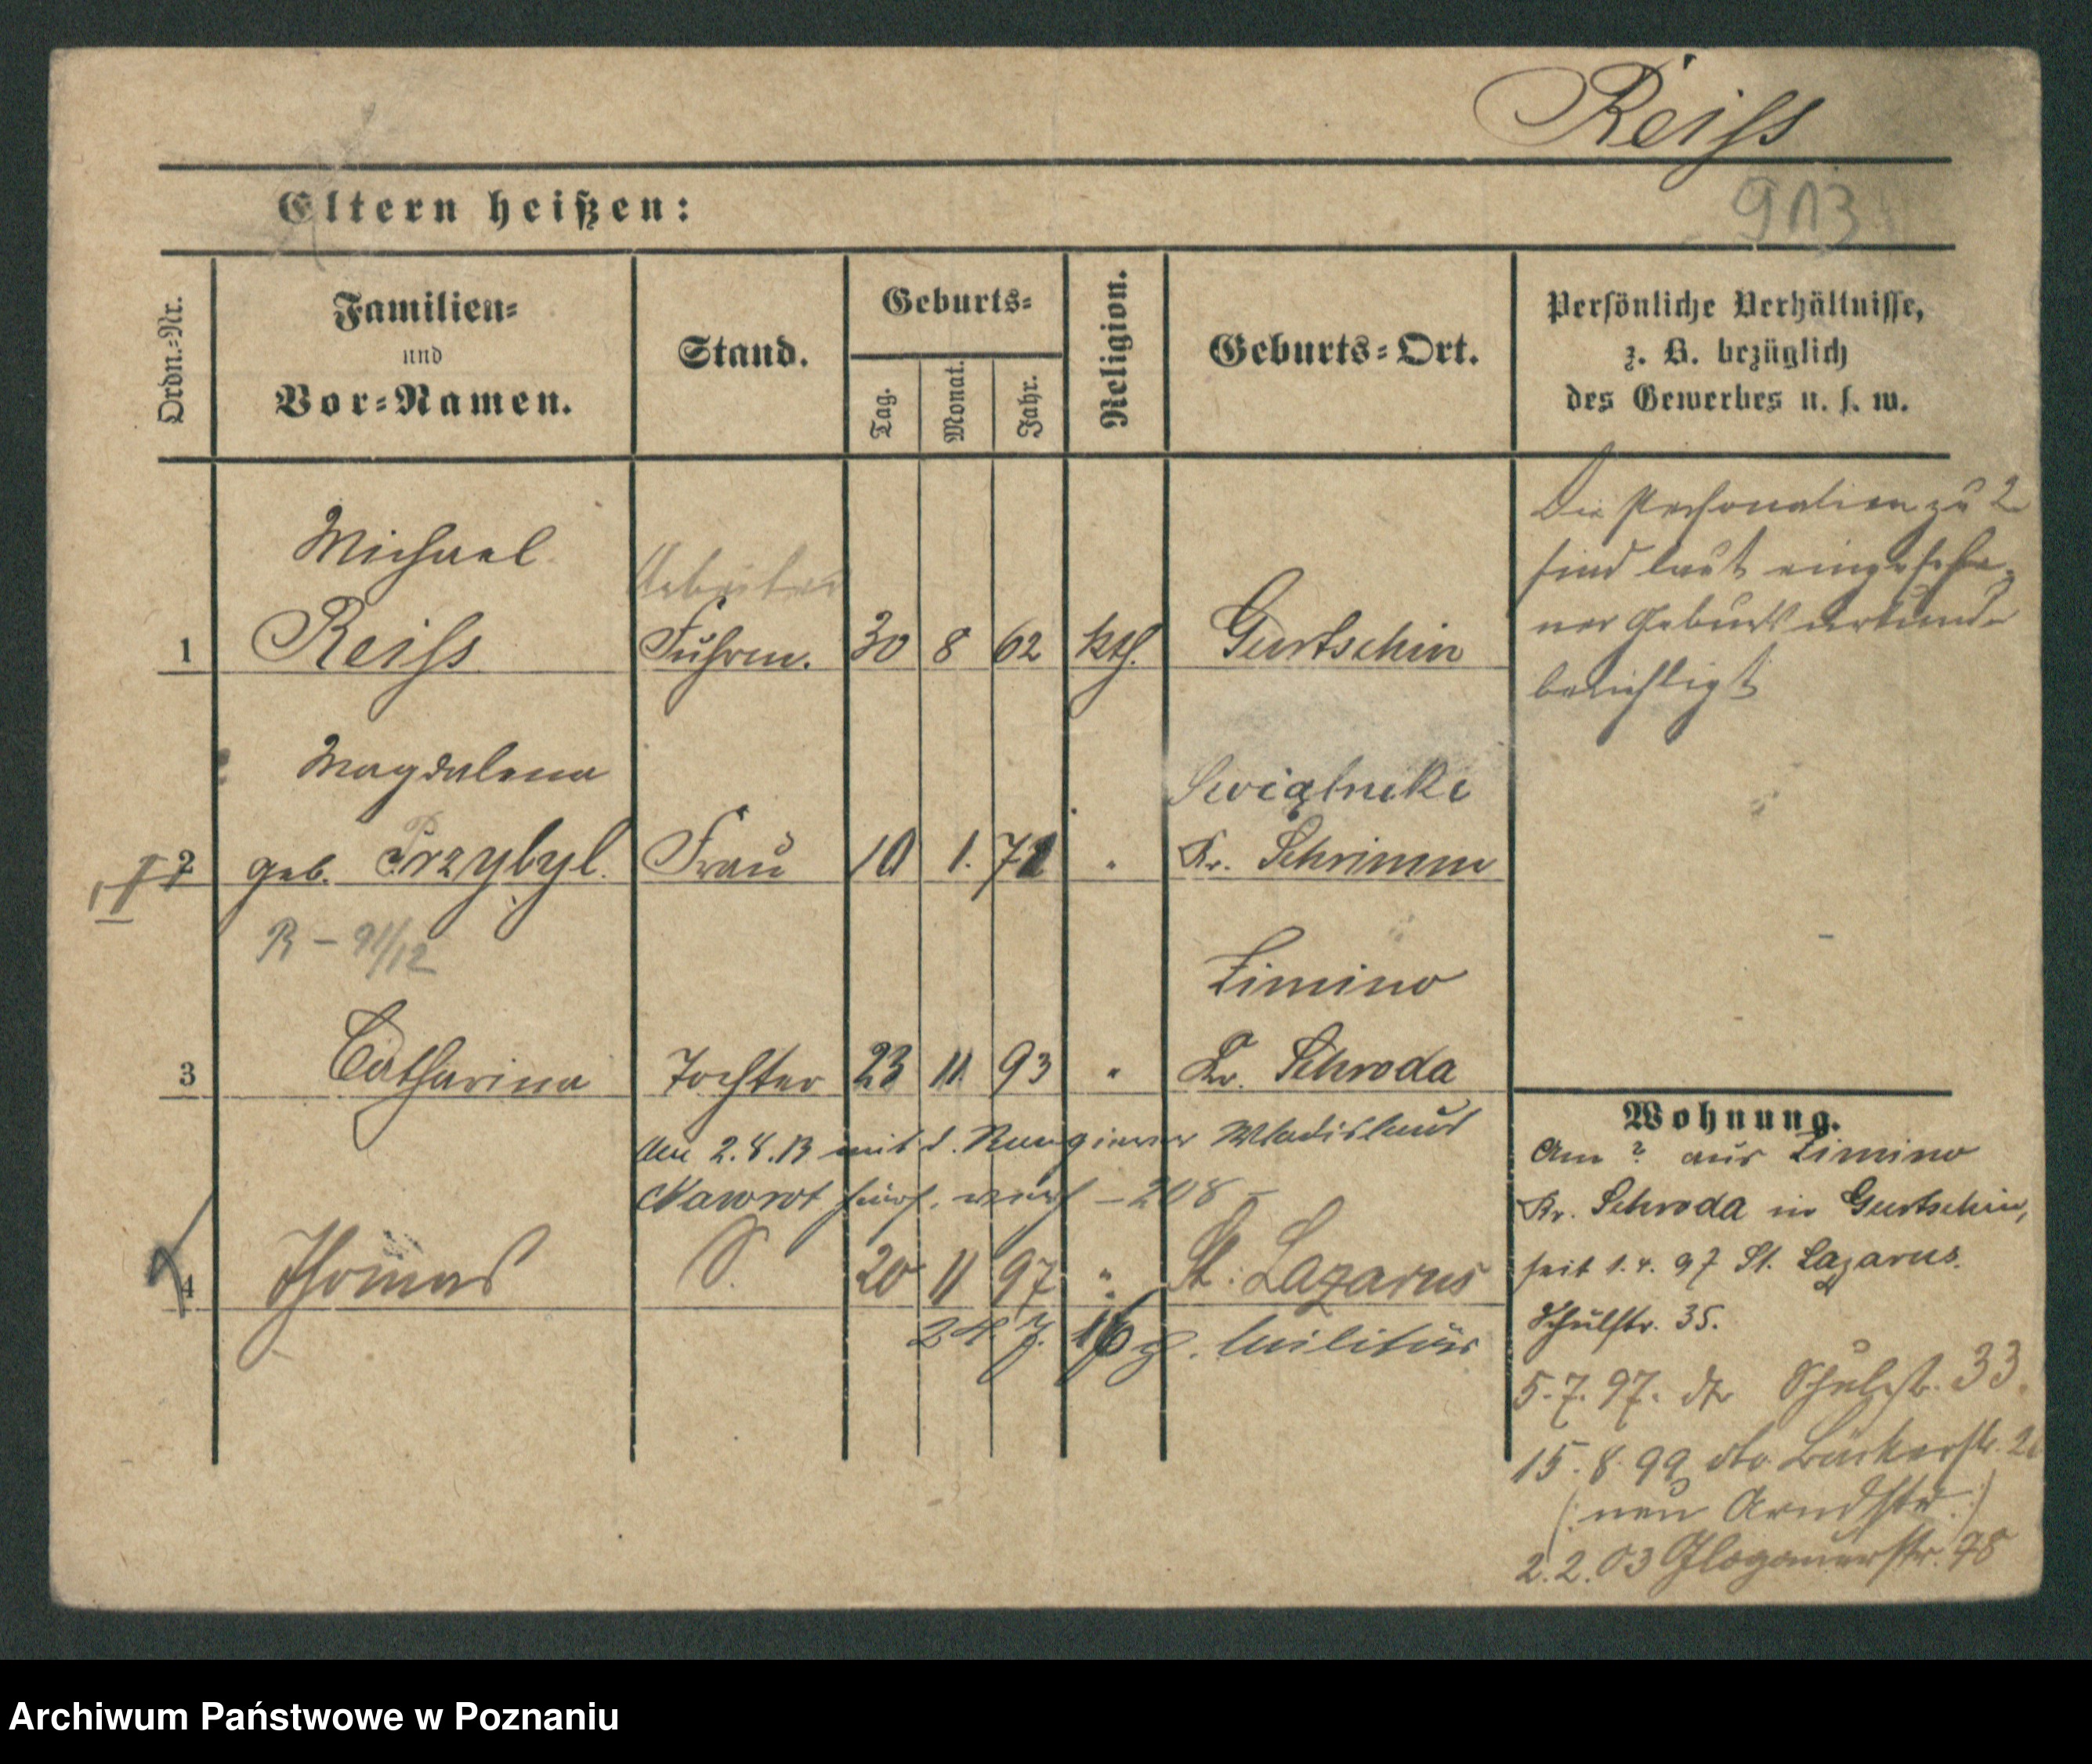 Reiſs
913
Eltern heißen:
Ordn.-Nr.
Familien-
und
Vor-Namen.
Stand.
Geburts-
Tag.
Monat.
Jahr.
Religion.
Geburts-Ort.
Persönliche Verhältnisse,
z. B. bezüglich
des Gewerbes u. s. w.
Michael
Arbeiter
1 Reiſs Fuhrm. 30 8 62 kth. Gurtschin
Die Personalien zu 2
sind laut eingesehe-
ner Geburtsurkunde
berichtigt
Magdalena
2 geb. Przybyl. Frau 10 1. 72 " Kr. Schrimm
R - 91/12
Zimino
3 Catharina Tochter 23 11 93 " Kr. Schroda
Am 2.8.13 mit d. Wladislaus
Nawrot - 208 -
4 Thomas S. 20 11 97 " St. Lazarus
24. 7. 16 z. Militär
Wohnung.
Am ? aus Zimino
Kr. Schroda in Gurtschin,
seit 1.4.97 St. Lazarus.
Schulstr. 35.
5.7.97. dto Schulstr. 33.
15.8.99 dto Bäckerstr.
(: neu Arndtstr. :)
2.2.03 Glogauerstr. 98
Archiwum Państwowe w Poznaniu